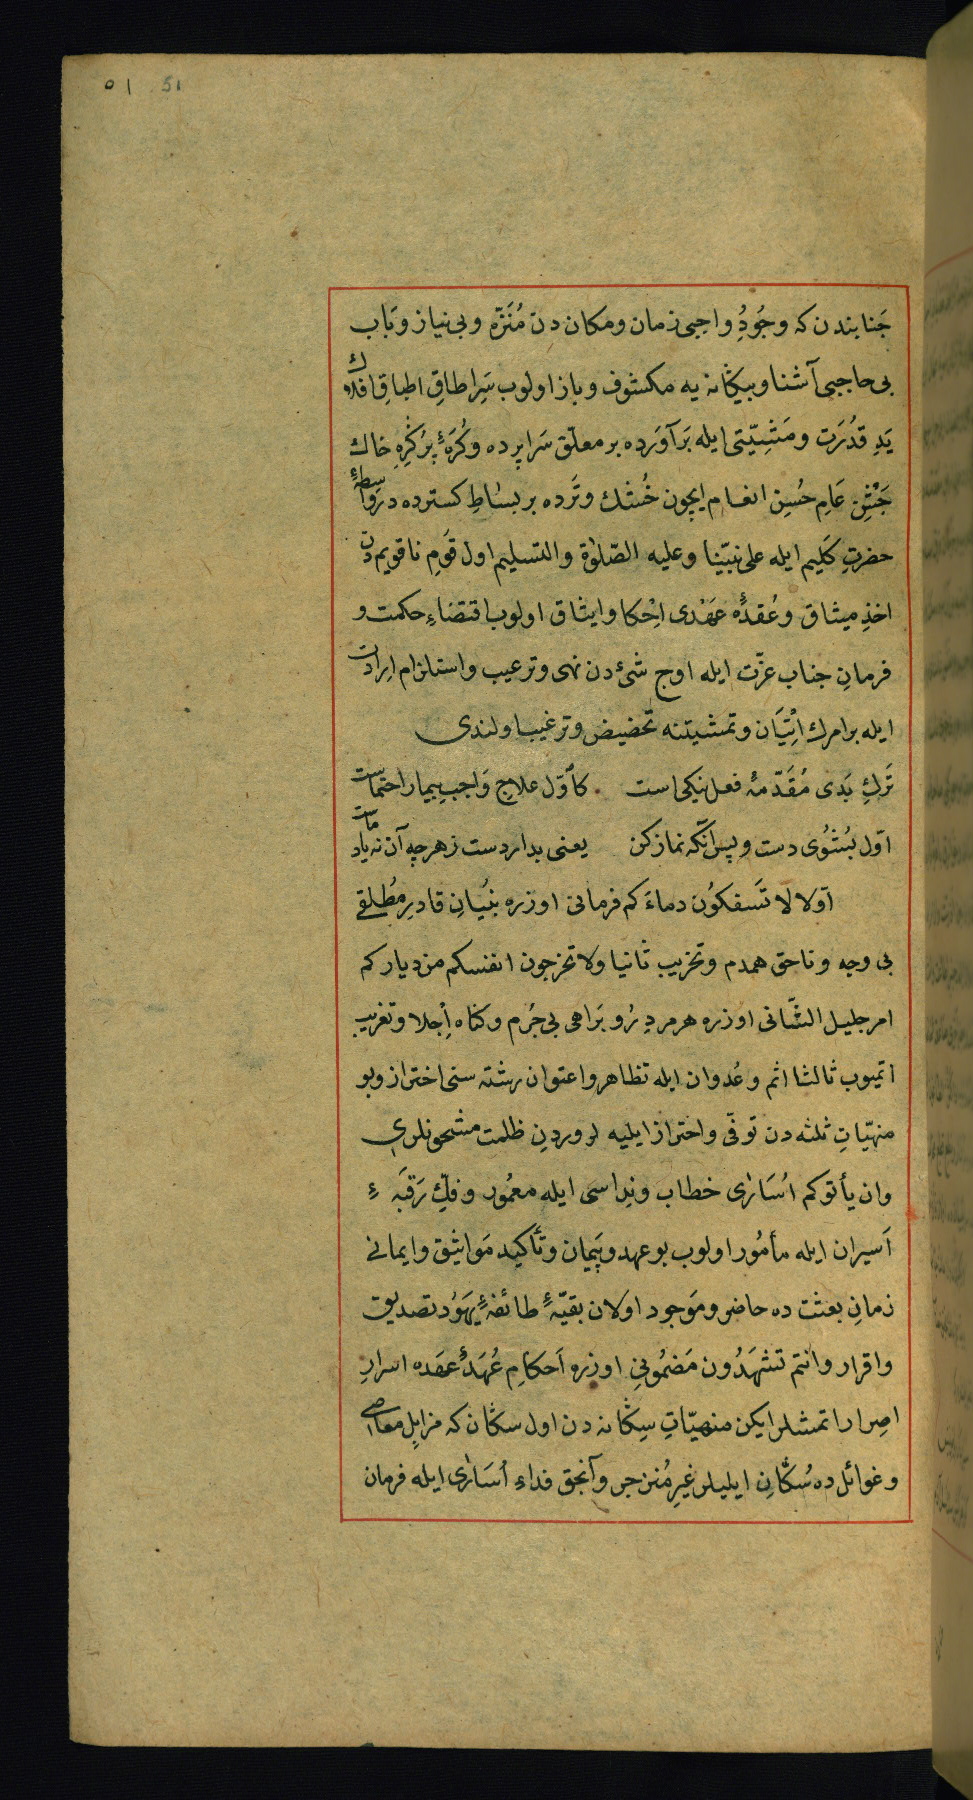 ٥١ 51
جَنابندن كه وجُودُِ واجبى زمان ومكان دن مُنَزّه وبى نياز وبَاب
بى حاجبى آشنا وبيكانه يه مكشوف وباز اولوب سَرِاطاقِ اطباقِ افلاك
يَدِ قدُرَت ومَشِيّتى ايله بَرآوَرده بر معلّق سَراپرده وكُرَهٔ پُركُرِهِ خاك
جَشْنِ عَامِ حُسنِ انعام ايچون خُشك وتَرده بر بساطِ كسترده در واسطهٔ
حضرتِ كَليم ايله على نبيّنا وعليه الصّلوٰة والتسليم اول قَومِ ناقويم دن
اخذِ ميثاق وعُقدهٔ عهَدى اِحْكام وايثاق اولوب اقتضاءِ حكمت و
فرمانِ جناب عزّت ايله اوج شئ دن نهى وترعيب واستلزام ايرادت
ايله بر امرك اِتْيَان وتمشيتنه تحضيض وترغيب اولندى
تَركِ بَدى مُقَدّمهٔ فعل نيكى است كاَوّل علاجِ وَاجبِ بيمار احتماست
اوّل بُشوُى دست وپس آنكه نماز كن يعنى بدار دست زهرچه آن نه ياد ماست
اوّلا لا تَسفكوُن دماءَ كم فرمانى اوزره بنُيانِ قادرِ مُطلقى
بى وجه وناحق هدم وتخزيب ثانيا ولا تخرجون انفسكم من ديار كم
امر جليل الشّانى اوزره هر مردِ رُو بَراهى بى جُرم وكناه اِجلا وتغريب
اتميوب ثالثا اثم وعُدوان ايله تظاهر واعتوان رشته سنى اختراز وبو
منهيّاتِ ثلثه دن توقّى واحتراز ايليه لر وردنِ ظلمت مشحونلرى
وان يأتوكم اُسَارٰى خطاب ونِداسى ايله معمُور وفكِّ رَقبَهٔ
اَسيران ايله مأمُور اولوب بو عهد وپَيمان وتأكيد مَواثيق وايمانى
زمانِ بعثت ده حاضر ومَوجود اولان بقيّهٔ طائفهٔ يهَوُد تصديق
واقرار وانتم تشهَدُون مَضمُونى اوزره اَحكامِ عُهَدهٔ عهَده اسرارِ
اصرار اتمشلر ايكن منهيّاتِ سِكَانه دن اول سكان كه مزابلِ معاصى
وغوائل ده سُكّانِ ايليلر غيرِ مُنزجر وآنجق فداءِ اُسَارٰى ايله فرمان